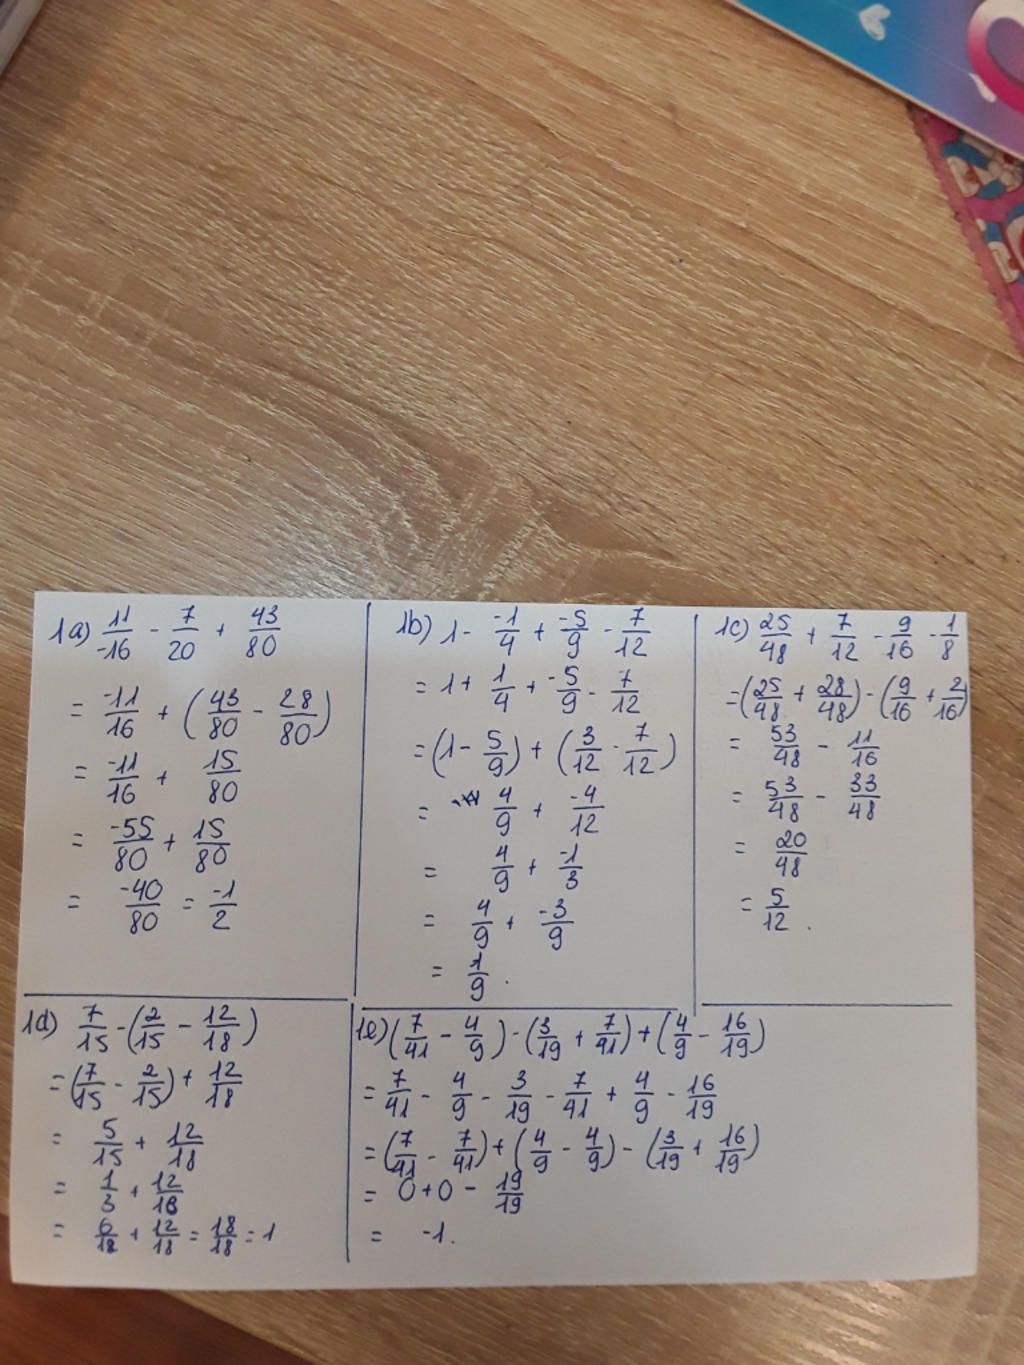 1a) 11/-16 - 7/20 + 43/80
= -11/16 + (43/80 - 28/80)
= -11/16 + 15/80
= -55/80 + 15/80
= -40/80 = -1/2
1b) 1 - -1/4 + -5/9 - 7/12
= 1 + 1/4 + -5/9 - 7/12
= (1 - 5/9) + (3/12 - 7/12)
= 4/9 + -4/12
= 4/9 + -1/3
= 4/9 + -3/9
= 1/9.
1c) 25/48 + 7/12 - 9/16 - 1/8
= (25/48 + 28/48) - (9/16 + 2/16)
= 53/48 - 11/16
= 53/48 - 33/48
= 20/48
= 5/12.
1d) 7/15 - (2/15 - 12/18)
= (7/15 - 2/15) + 12/18
= 5/15 + 12/18
= 1/3 + 12/18
= 6/18 + 12/18 = 18/18 = 1
1e) (7/41 - 4/9) - (3/19 + 7/41) + (4/9 - 16/19)
= 7/41 - 4/9 - 3/19 - 7/41 + 4/9 - 16/19
= (7/41 - 7/41) + (4/9 - 4/9) - (3/19 + 16/19)
= 0 + 0 - 19/19
= -1.